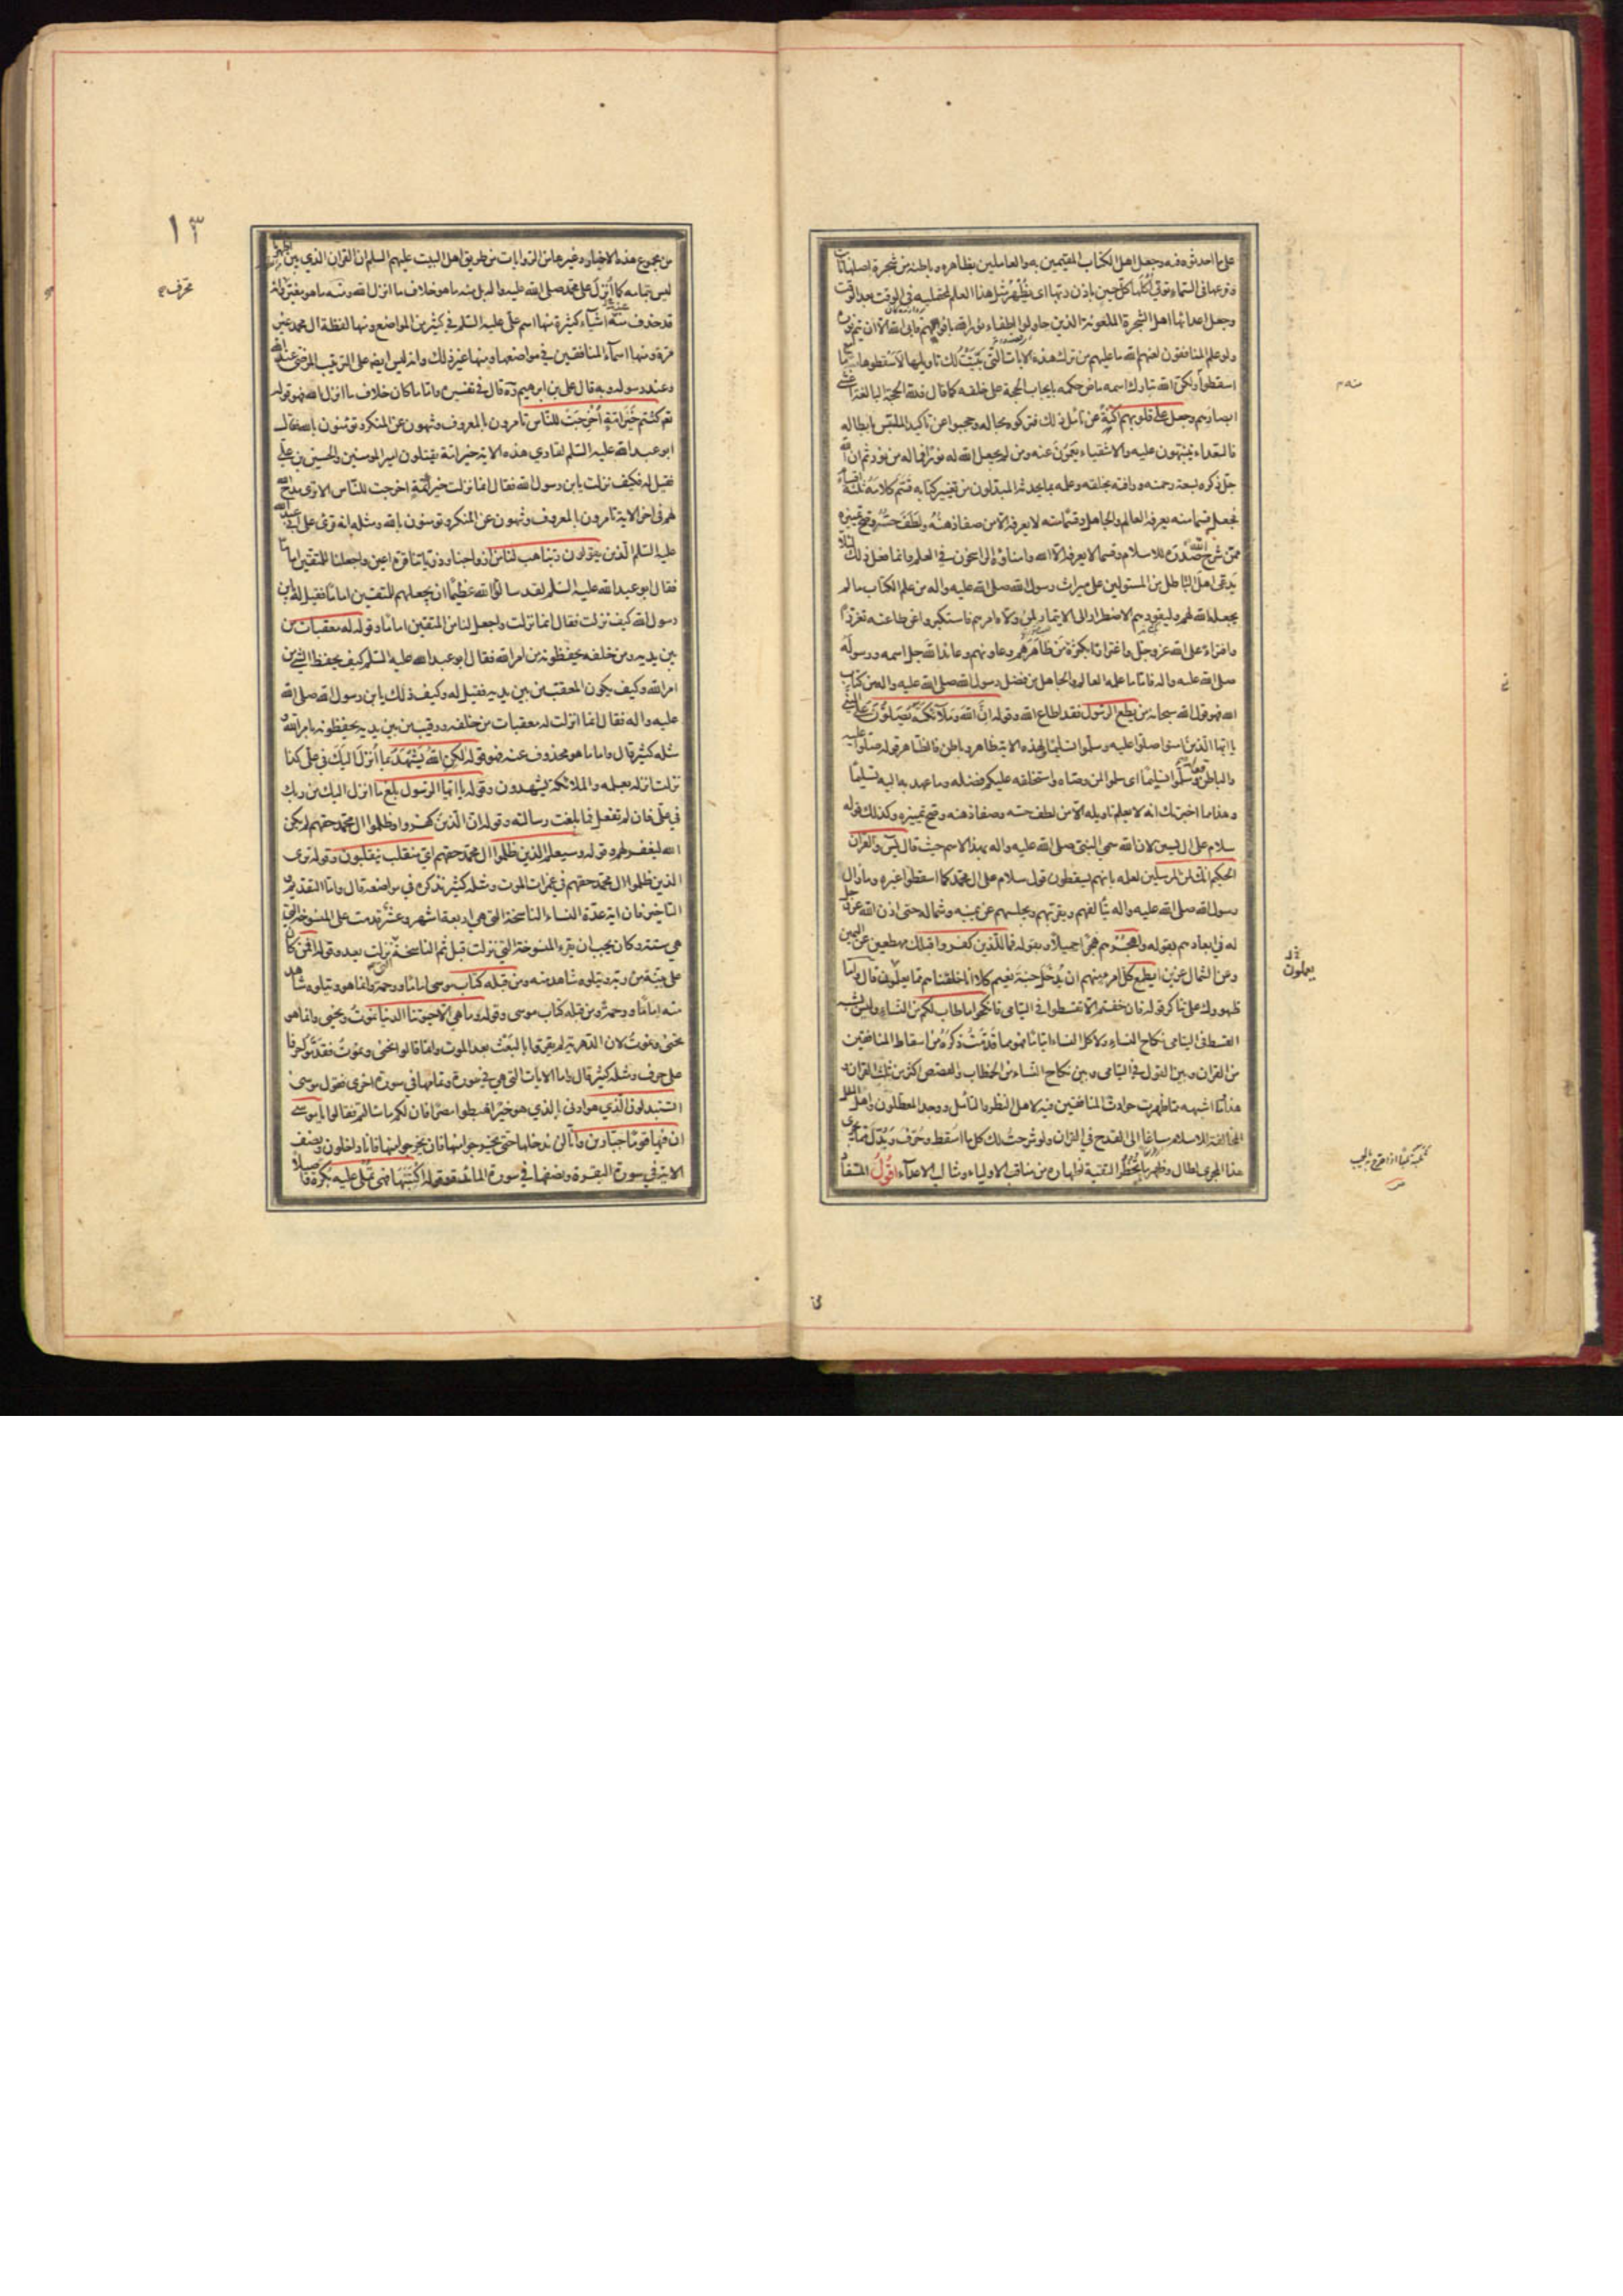 على ما احدثوه فيه وجعل اهل الكتاب المقيمين به والعاملين بظاهره وباطنه من شجرة اصلها ثابت
وفرعها في السماء تؤتي اكلها كل حين باذن ربها اى يظهر مثل هذا العلم لمحتمليه في الوقت بعد الوقت
وجعل اعدائها اهل الشجرة الملعونة الذين حاولوا اطفاء نور الله بافواههم فابى الله الا ان يتم نوره
ولو علم المنافقون لعنهم الله ما عليهم من ترك هذه الايات التي بينت لك تاويلها لاسقطوها مع ما
اسقطوا ولكن الله تبارك اسمه ماض حكمه بايجاب الحجة على خلقه كما قال فلله الحجة البالغة اغشى
ابصارهم وجعل على قلوبهم اكنة عن تأمل ذلك فتركوه بحاله وحجبوا عن تاكيد الملتبس بابطاله
فالسعداء ينتبهون عليه والاشقياء يعمون عنه ومن لم يجعل الله له نورا فما له من نور ثم ان الله
جل ذكره لسعة رحمته ورافته بخلقه وعلمه بما يحدثه المبدلون من تغيير كتابه قسم كلامه ثلثة اقسام
فجعل قسما منه يعرفه العالم والجاهل وقسما منه لا يعرفه الا من صفا ذهنه ولطف حسه وصح تمييزه
ممن شرح الله صدره للاسلام وقسما لا يعرفه الا الله وامناؤه والراسخون في العلم وانما فعل ذلك لئلا
يدعى اهل الباطل من المستولين على ميراث رسول الله صلى الله عليه واله من علم الكتاب ما لم
يجعله الله لهم وليقودهم الاضطرار الى الايتمار لمن ولاه امرهم فاستكبروا عن طاعته تعززا
وافتراء على الله عز وجل واغترارا بكثرة من ظاهرهم وعاونهم وعاند الله جل اسمه ورسوله
صلى الله عليه واله فاما ما علمه العالم والجاهل من فضل رسول الله صلى الله عليه واله من كتاب
الله فهو قول الله سبحانه من يطع الرسول فقد اطاع الله وقوله ان الله وملائكته يصلون على النبي
يا ايها الذين امنوا صلوا عليه وسلموا تسليما ولهذه الاية ظاهر وباطن فالظاهر قوله صلوا عليه
والباطن قوله وسلموا تسليما اى سلموا لمن وصاه واستخلفه عليكم فضله وما عهد به اليه تسليما
وهذا مما اخبرتك انه لا يعلم تاويله الا من لطف حسه وصفا ذهنه وصح تمييزه وكذلك قوله
سلام على ال يسين لان الله سمى النبي صلى الله عليه واله بهذا الاسم حيث قال يس والقران
الحكيم انك لمن المرسلين لعلمه بانهم يسقطون قول سلام على ال محمد كما اسقطوا غيره وما زال
رسول الله صلى الله عليه واله يتالفهم ويقربهم ويجلسهم عن يمينه وشماله حتى اذن الله عز وجل
له في ابعادهم بقوله واهجرهم هجرا جميلا وبقوله فما للذين كفروا قبلك مهطعين عن اليمين
وعن الشمال عزين ايطمع كل امرء منهم ان يدخل جنة نعيم كلا انا خلقناهم مما يعلمون قال واما
ظهورك على تناكر قوله فان خفتم الا تقسطوا في اليتامى فانكحوا ما طاب لكم من النساء وليس يشبه
القسط في اليتامى نكاح النساء ولا كل النساء ايتاما فهو مما قدمت ذكره من اسقاط المنافقين
من القران وبين القول في اليتامى وبين نكاح النساء من الخطاب والقصص اكثر من ثلث القران و
هذا مما اشبهه مما ظهرت حوادث المنافقين فيه لاهل النظر والتأمل ووجد المعطلون واهل الملل
المخالفة للاسلام مساغا الى القدح في القران ولو شرحت لك كل ما اسقط وحرف وبدل مما يجرى
هذا المجرى لطال وظهر ما تحظر التقية اظهاره من مناقب الاولياء ومثالب الاعداء اقول المستفاد
يعلمون
١٣
من مجموع هذه الاخبار وغيرها من الروايات من طريق اهل البيت عليهم السلم ان القران الذي بين اظهرنا
ليس بتمامه كما انزل على محمد صلى الله عليه واله بل منه ما هو خلاف ما انزل الله ومنه ما هو مغير وانه
قد حذف منه اشياء كثيرة منها اسم على عليه السلم في كثير من المواضع ومنها لفظة ال محمد غير
مرة ومنها اسماء المنافقين في مواضعها ومنها غير ذلك وانه ليس ايضا على الترتيب المرضى عند الله
وعند رسوله وبه قال على بن ابرهيم ره قال في تفسيره واما ما كان خلاف ما انزل الله فهو قوله
تع كنتم خير امة اخرجت للناس تامرون بالمعروف وتنهون عن المنكر وتؤمنون بالله فقال
ابو عبد الله عليه السلم لقاري هذه الاية خير امة يقتلون امير المومنين والحسين بن على
فقيل له فكيف نزلت يابن رسول الله فقال انما نزلت خير ائمة اخرجت للناس الا ترى مدح الله
لهم في اخر الاية تامرون بالمعروف وتنهون عن المنكر وتومنون بالله ومثله انه قرئ على ابى عبد الله
عليه السلم الذين يقولون ربنا هب لنا من ازواجنا وذرياتنا قرة اعين واجعلنا للمتقين اماما
فقال ابو عبد الله عليه السلم لقد سالوا الله عظيما ان يجعلهم للمتقين اماما فقيل له يابن
رسول الله كيف نزلت فقال انما نزلت واجعل لنا من المتقين اماما وقوله له معقبات من
بين يديه ومن خلفه يحفظونه من امر الله فقال ابو عبد الله عليه السلم كيف يحفظ الشئ من
امر الله وكيف يكون المعقب من بين يديه فقيل له وكيف ذلك يابن رسول الله صلى الله
عليه واله فقال انما انزلت له معقبات من خلفه ورقيب من بين يديه يحفظونه بامر الله و
مثله كثير قال واما ما هو محذوف عنه فهو قوله لكن الله يشهد بما انزل اليك في على كذا
نزلت انزله بعلمه والملائكة يشهدون وقوله يا ايها الرسول بلغ ما انزل اليك من ربك
في على فان لم تفعل فما بلغت رسالته وقوله ان الذين كفروا وظلموا ال محمد حقهم لم يكن
الله ليغفر لهم وقوله وسيعلم الذين ظلموا ال محمد حقهم اى منقلب ينقلبون وقوله ترى
الذين ظلموا ال محمد حقهم في غمرات الموت ومثله كثير نذكره في مواضعه قال واما التقديم و
التاخير فان اية عدة النساء الناسخة التي هى اربعة اشهر وعشر قدمت على المنسوخة التي
هي سنة وكان يجب ان يقرء المنسوخة التي نزلت قبل ثم الناسخة التي نزلت بعد وقوله افمن كان
على بينة من ربه ويتلوه شاهد منه ومن قبله كتاب موسى اماما ورحمة وانما هو ويتلوه شاهد
منه اماما ورحمة ومن قبله كتاب موسى وقوله وما هي الا حيوتنا الدنيا نموت ونحيى وانما هو
نحيى ونموت لان الدهرية لم يقروا بالبعث بعد الموت وانما قالوا نحيى ونموت فقدموا حرفا
على حرف ومثله كثير قال واما الايات التي هي في سورة وتمامها في سورة اخرى فقول موسى
اتستبدلون الذي هو ادنى بالذي هو خير اهبطوا مصرا فان لكم ما سالتم فقالوا يا موسى
ان فيها قوما جبارين وانا لن ندخلها حتى يخرجوا منها فان يخرجوا منها فانا داخلون ونصف
الاية في سورة البقرة ونصفها في سورة المائدة وقوله اكتتبها فهى تملى عليه بكرة واصيلا